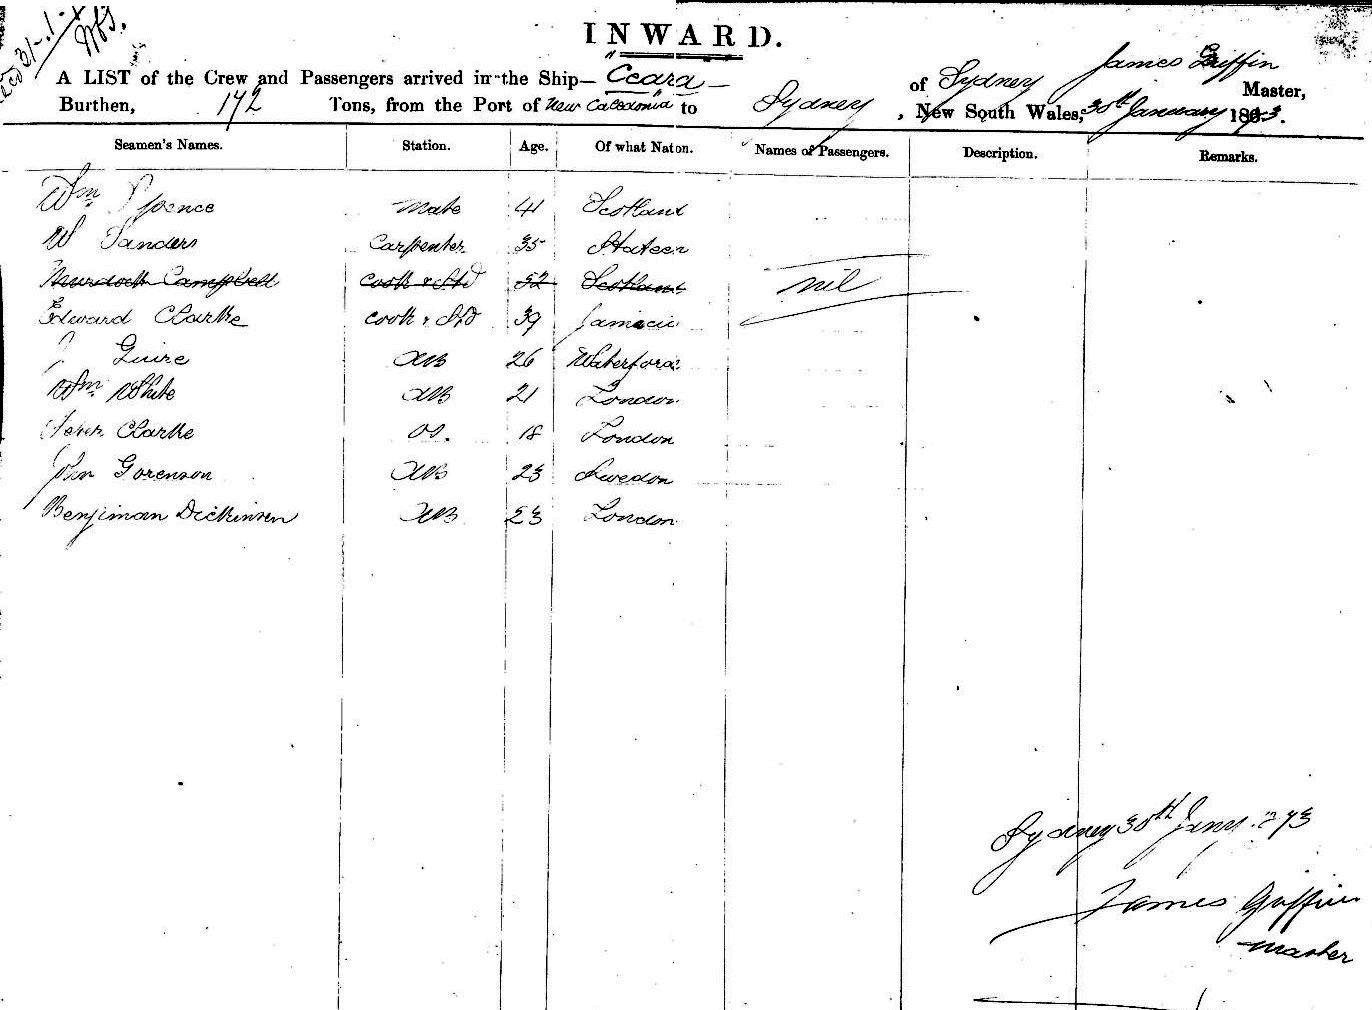 INWARD.
A LIST of the Crew and Passengers arrived in the Ship "Ceara" of Sydney James Griffin Master,
Burthen, 172 Tons, from the Port of New Caledonia to Sydney, New South Wales, 30th January 1873.
Seamen's Names. Station. Age. Of what Naton. Names of Passengers. Description. Remarks.
Wm Spence Mate 41 Scotland
W Sanders Carpenter 35 States
Murdoch Campbell cook & Std 52 Scotland nil
Edward Clarke cook & Std 39 Jamacia
J Guire AB 26 Waterford
Wm White AB 21 London
Clarke OS. 18 London
John Gorenson AB 23 Swedon
Benjiman Dickinson AB 23 London
Sydney 30th Jany. 73
James Griffin
Master